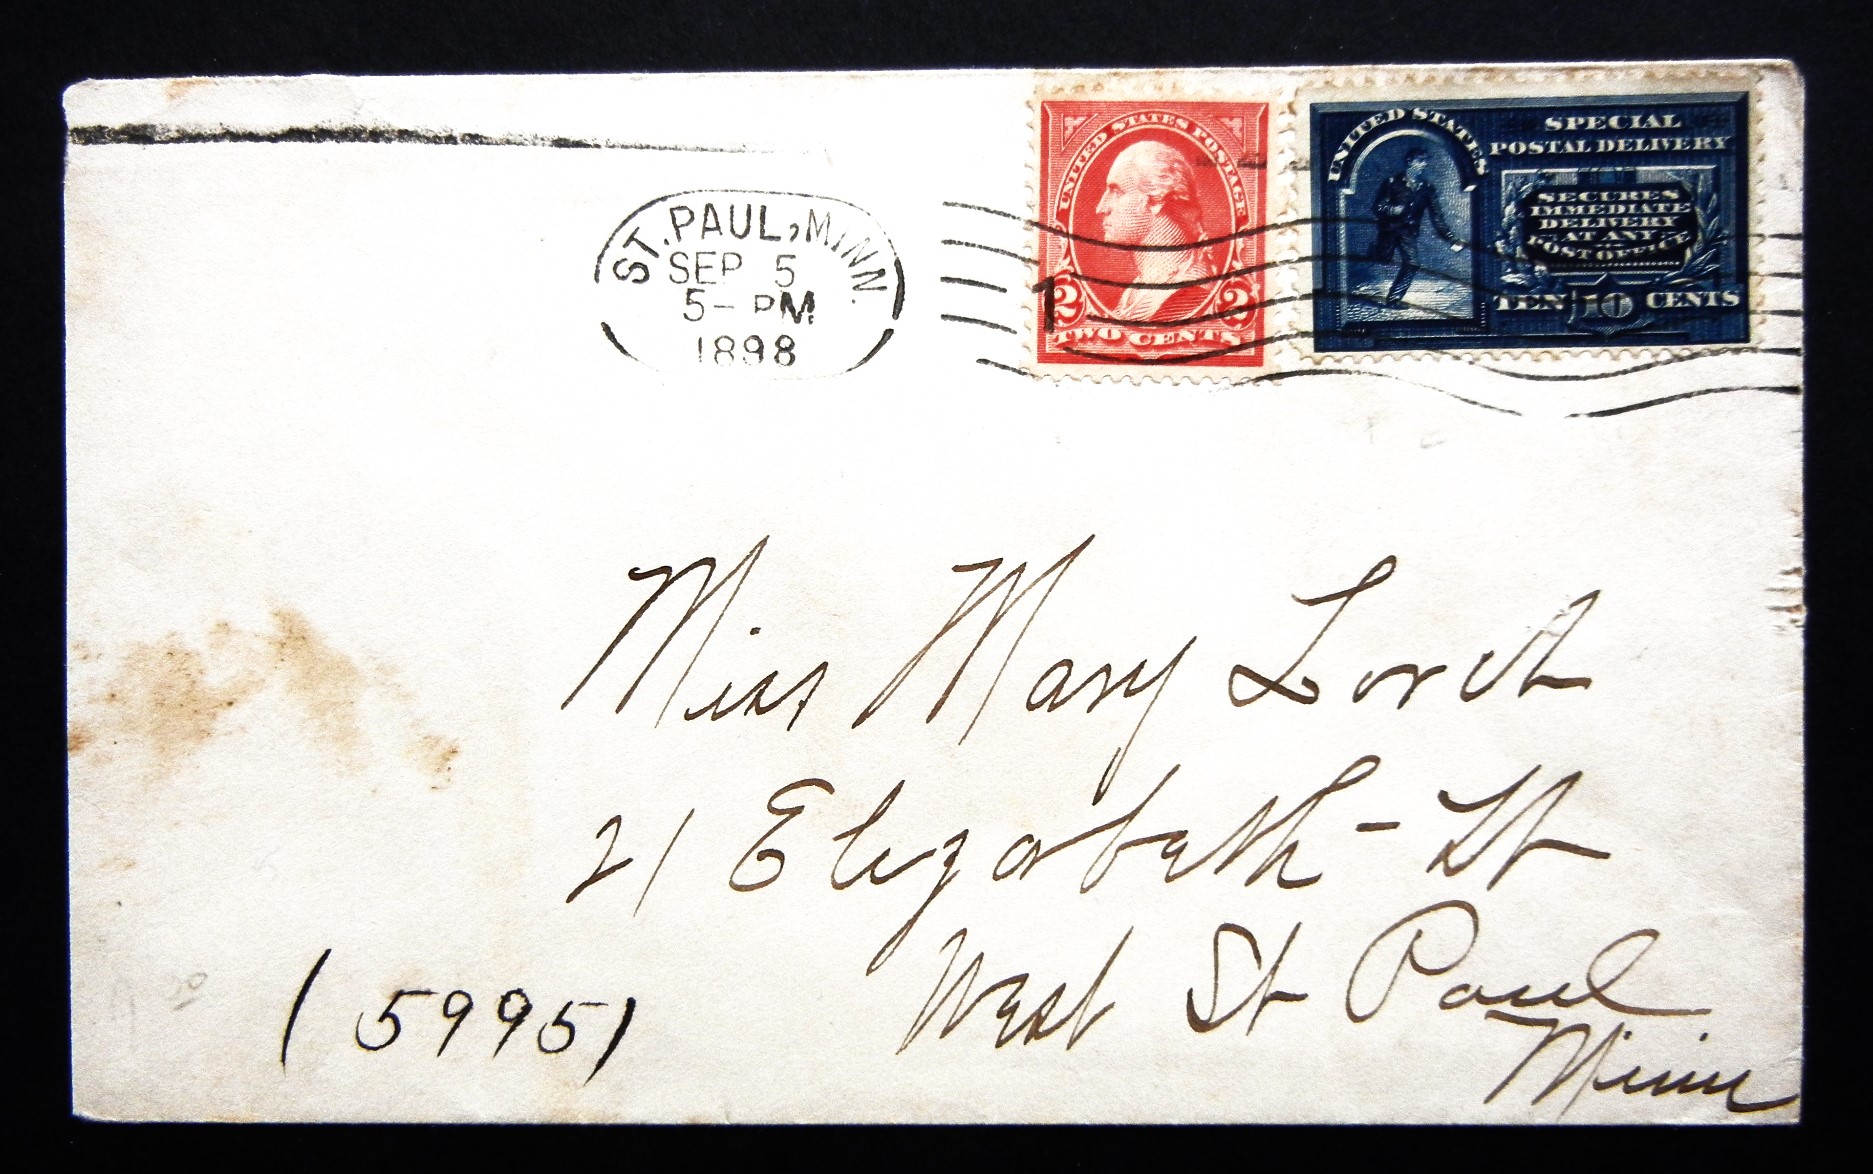 ST. PAUL, MINN.
SEP 5
5- PM
1898
1
UNITED STATES POSTAGE
2 2
TWO CENTS
UNITED STATES
SPECIAL
POSTAL DELIVERY
SECURES
IMMEDIATE
DELIVERY
AT ANY
POST OFFICE
TEN 10 CENTS
Miss Mary Lorch
21 Elizabeth - St
West St Paul
Minn
(5995)